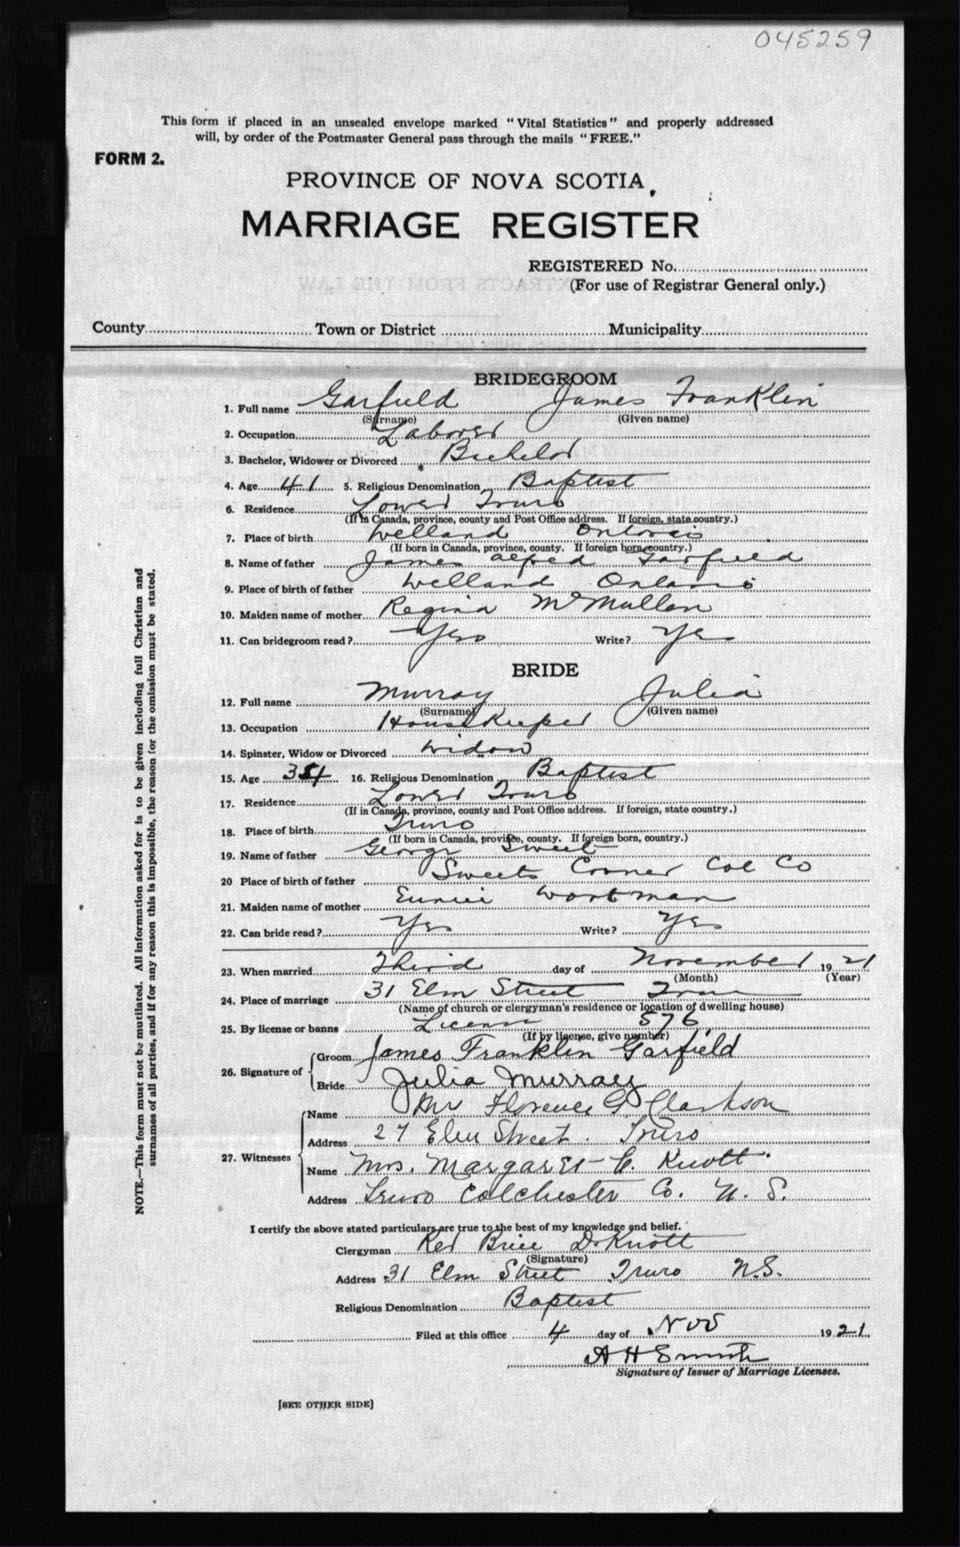 045259
This form if placed in an unsealed envelope marked "Vital Statistics" and properly addressed
will, by order of the Postmaster General pass through the mails "FREE."
FORM 2.
PROVINCE OF NOVA SCOTIA
MARRIAGE REGISTER
REGISTERED No.
(For use of Registrar General only.)
County Town or District Municipality
BRIDEGROOM
1. Full name Garfield James Franklin
(Surname) (Given name)
2. Occupation Laborer
3. Bachelor, Widower or Divorced Bachelor
4. Age 41 5. Religious Denomination Baptist
6. Residence Lower Truro
(If in Canada, province, county and Post Office address. If foreign, state country.)
7. Place of birth Welland Ontario
(If born in Canada, province, county. If foreign born, country.)
8. Name of father James Alfred Garfield
9. Place of birth of father Welland Ontario
10. Maiden name of mother Regina McMullen
11. Can bridegroom read? Yes Write? Yes
BRIDE
12. Full name Murray Julia
(Surname) (Given name)
13. Occupation Housekeeper
14. Spinster, Widow or Divorced Widow
15. Age 34 16. Religious Denomination Baptist
17. Residence Lower Truro
(If in Canada, province, county and Post Office address. If foreign, state country.)
18. Place of birth Truro
(If born in Canada, province, county. If foreign born, country.)
19. Name of father George Sweet
20 Place of birth of father Sweets Corner Col Co
21. Maiden name of mother Eunice Wortman
22. Can bride read? Yes Write? Yes
23. When married Third day of November 1921
(Month) (Year)
24. Place of marriage 31 Elm Street Truro
(Name of church or clergyman's residence or location of dwelling house)
25. By license or banns License 576
(If by license, give number)
26. Signature of
Groom James Franklin Garfield
Bride Julia Murray
27. Witnesses
Name Mr Florence G. Clarkson
Address 27 Elm Street. Truro
Name Mrs. Margaret C. Knott
Address Truro Colchester Co. N. S.
I certify the above stated particulars are true to the best of my knowledge and belief.
Clergyman Rev Brice D. Knott
(Signature)
Address 31 Elm Street Truro N.S.
Religious Denomination Baptist
Filed at this office 4 day of Nov 1921
A H Smith
Signature of Issuer of Marriage Licenses.
[SEE OTHER SIDE]
NOTE.—This form must not be mutilated. All information asked for is to be given including full Christian and
surnames of all parties, and if for any reason this is impossible, the reason for the omission must be stated.